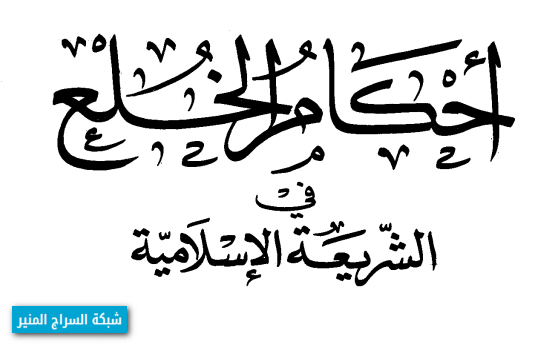 أحْكَامُ الخُلْعِ
في
الشَّرِيعَة الإِسْلَاميَّة
شبكة السراج المنير